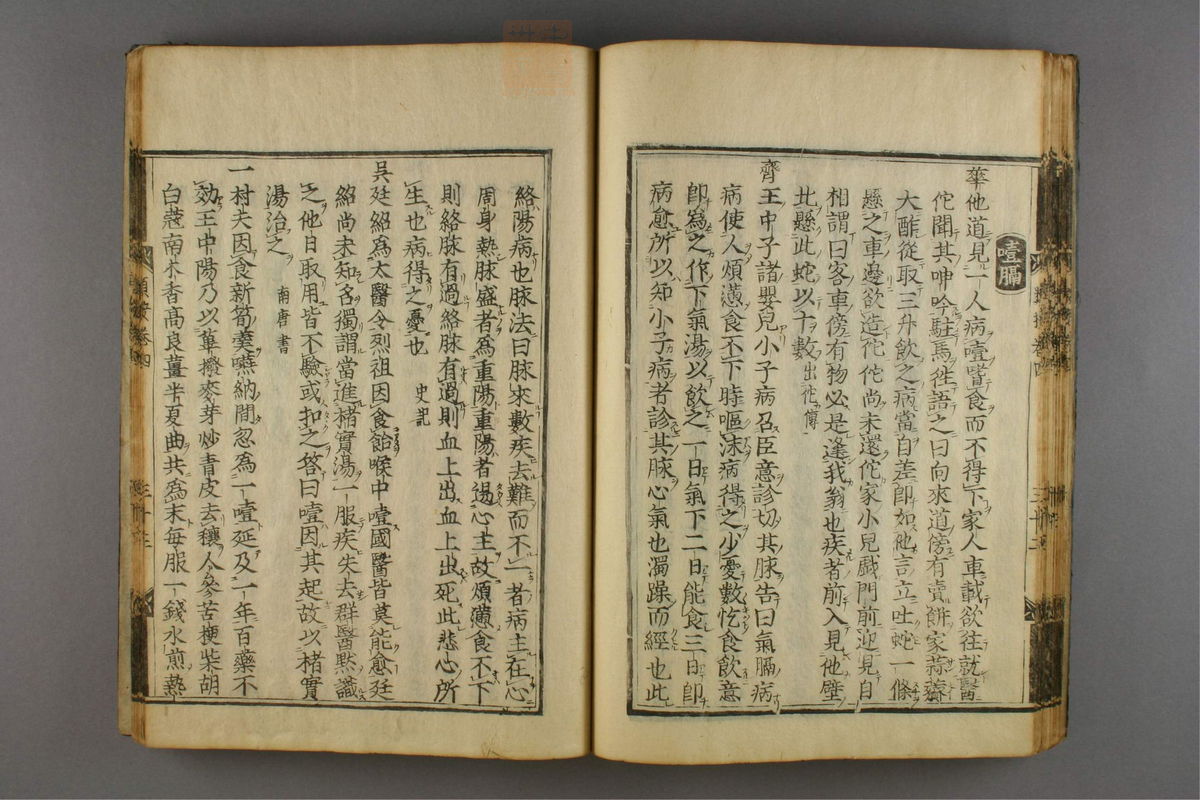 噎膈
華佗道見一人病噎嗜食而不得下家人車載欲往就醫
佗聞其呻吟駐馬往語之曰向來道傍有賣餅家蒜虀
大酢從取三升飲之病當自差即如佗言立吐蛇一條
懸之車邊欲造佗佗尚未還佗家小兒戲門前迎見自
相謂曰客車傍有物必是逢我翁也疾者前入見佗壁
北懸此蛇以十數出佗傳
齊王中子諸嬰兒小子病召臣意診切其脉告曰氣膈病
病使人煩懣食不下時嘔沫病得之少憂數忔食飲意
即爲之作下氣湯以飲之一日氣下二日能食三日即
病愈所以知小子病者診其脉心氣也濁躁而經也此
絡陽病也脉法曰脉來數疾去難而不一者病主在心
周身熱脉盛者爲重陽重陽者逷心主故煩懣食不下
則絡脉有過絡脉有過則血上出血上出死此悲心所
生也病得之憂也 史記
吳廷紹爲太醫令烈祖因食飴喉中噎國醫皆莫能愈廷
紹尚未知名獨謂當進楮實湯一服疾失去群醫默識
之他日取用皆不驗或扣之答曰噎因其起故以楮實
湯治之 南唐書
一村夫因食新筍羹嚥納間忽爲一噎延及一年百藥不
効王中陽乃以蓽撥麥芽炒青皮去穰人參苦梗柴胡
白蔻南木香高良薑半夏曲共爲末每服一錢水煎熱